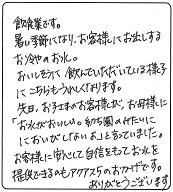 飲食業です。
暑い季節になり、お客様にお出しする
お冷やのお水。
おいしそうに飲んでいただいている様子
にこちらもうれしくなります。
先日、お子さまのお客様が、お母様に
「お水がおいしい。幼ち園のみたいに
においがしないよ」と言っていました。
お客様に安心して自信をもってお水を
提供できるのもアクアスのおかげです。
ありがとうございます